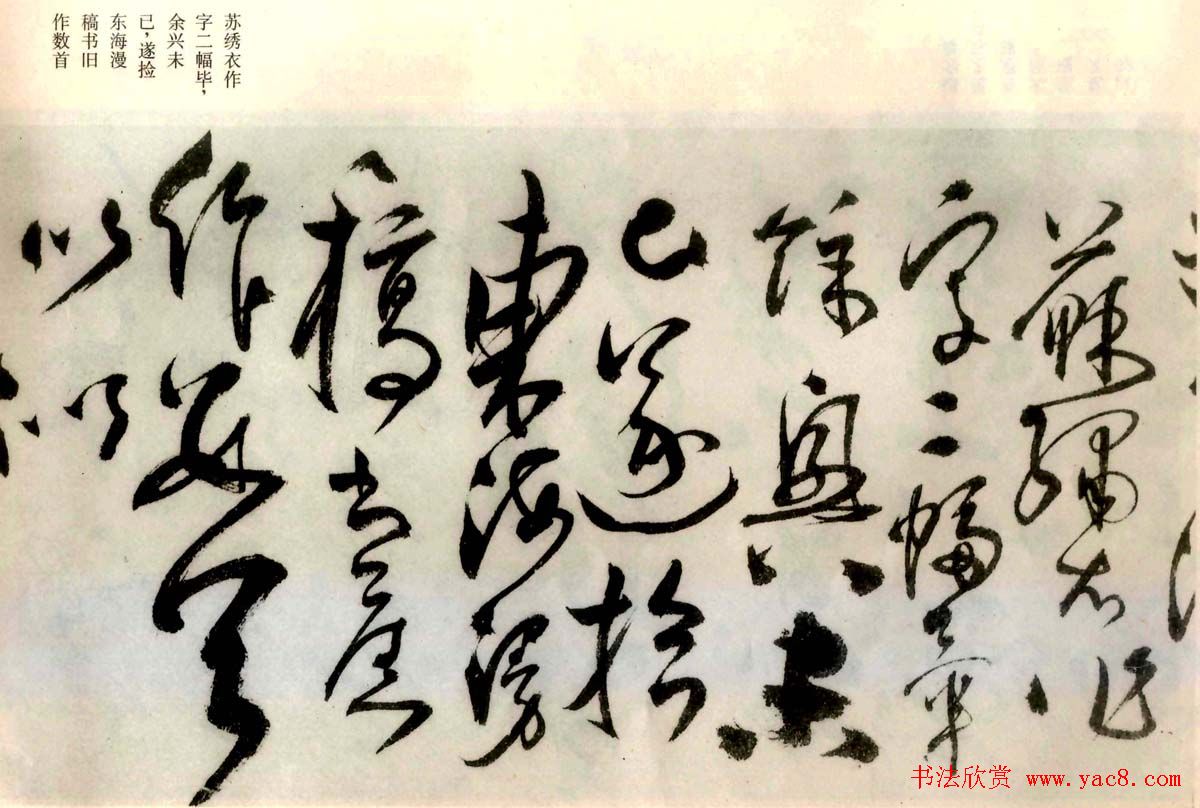 苏绣衣作
字二幅毕，
余兴未
已，遂捡
东海漫
稿书旧
作数首
蘇繡衣作
字二幅畢
餘興未
已遂撿
東海漫
稿書舊
作數首
以
书法欣赏 www.yac8.com